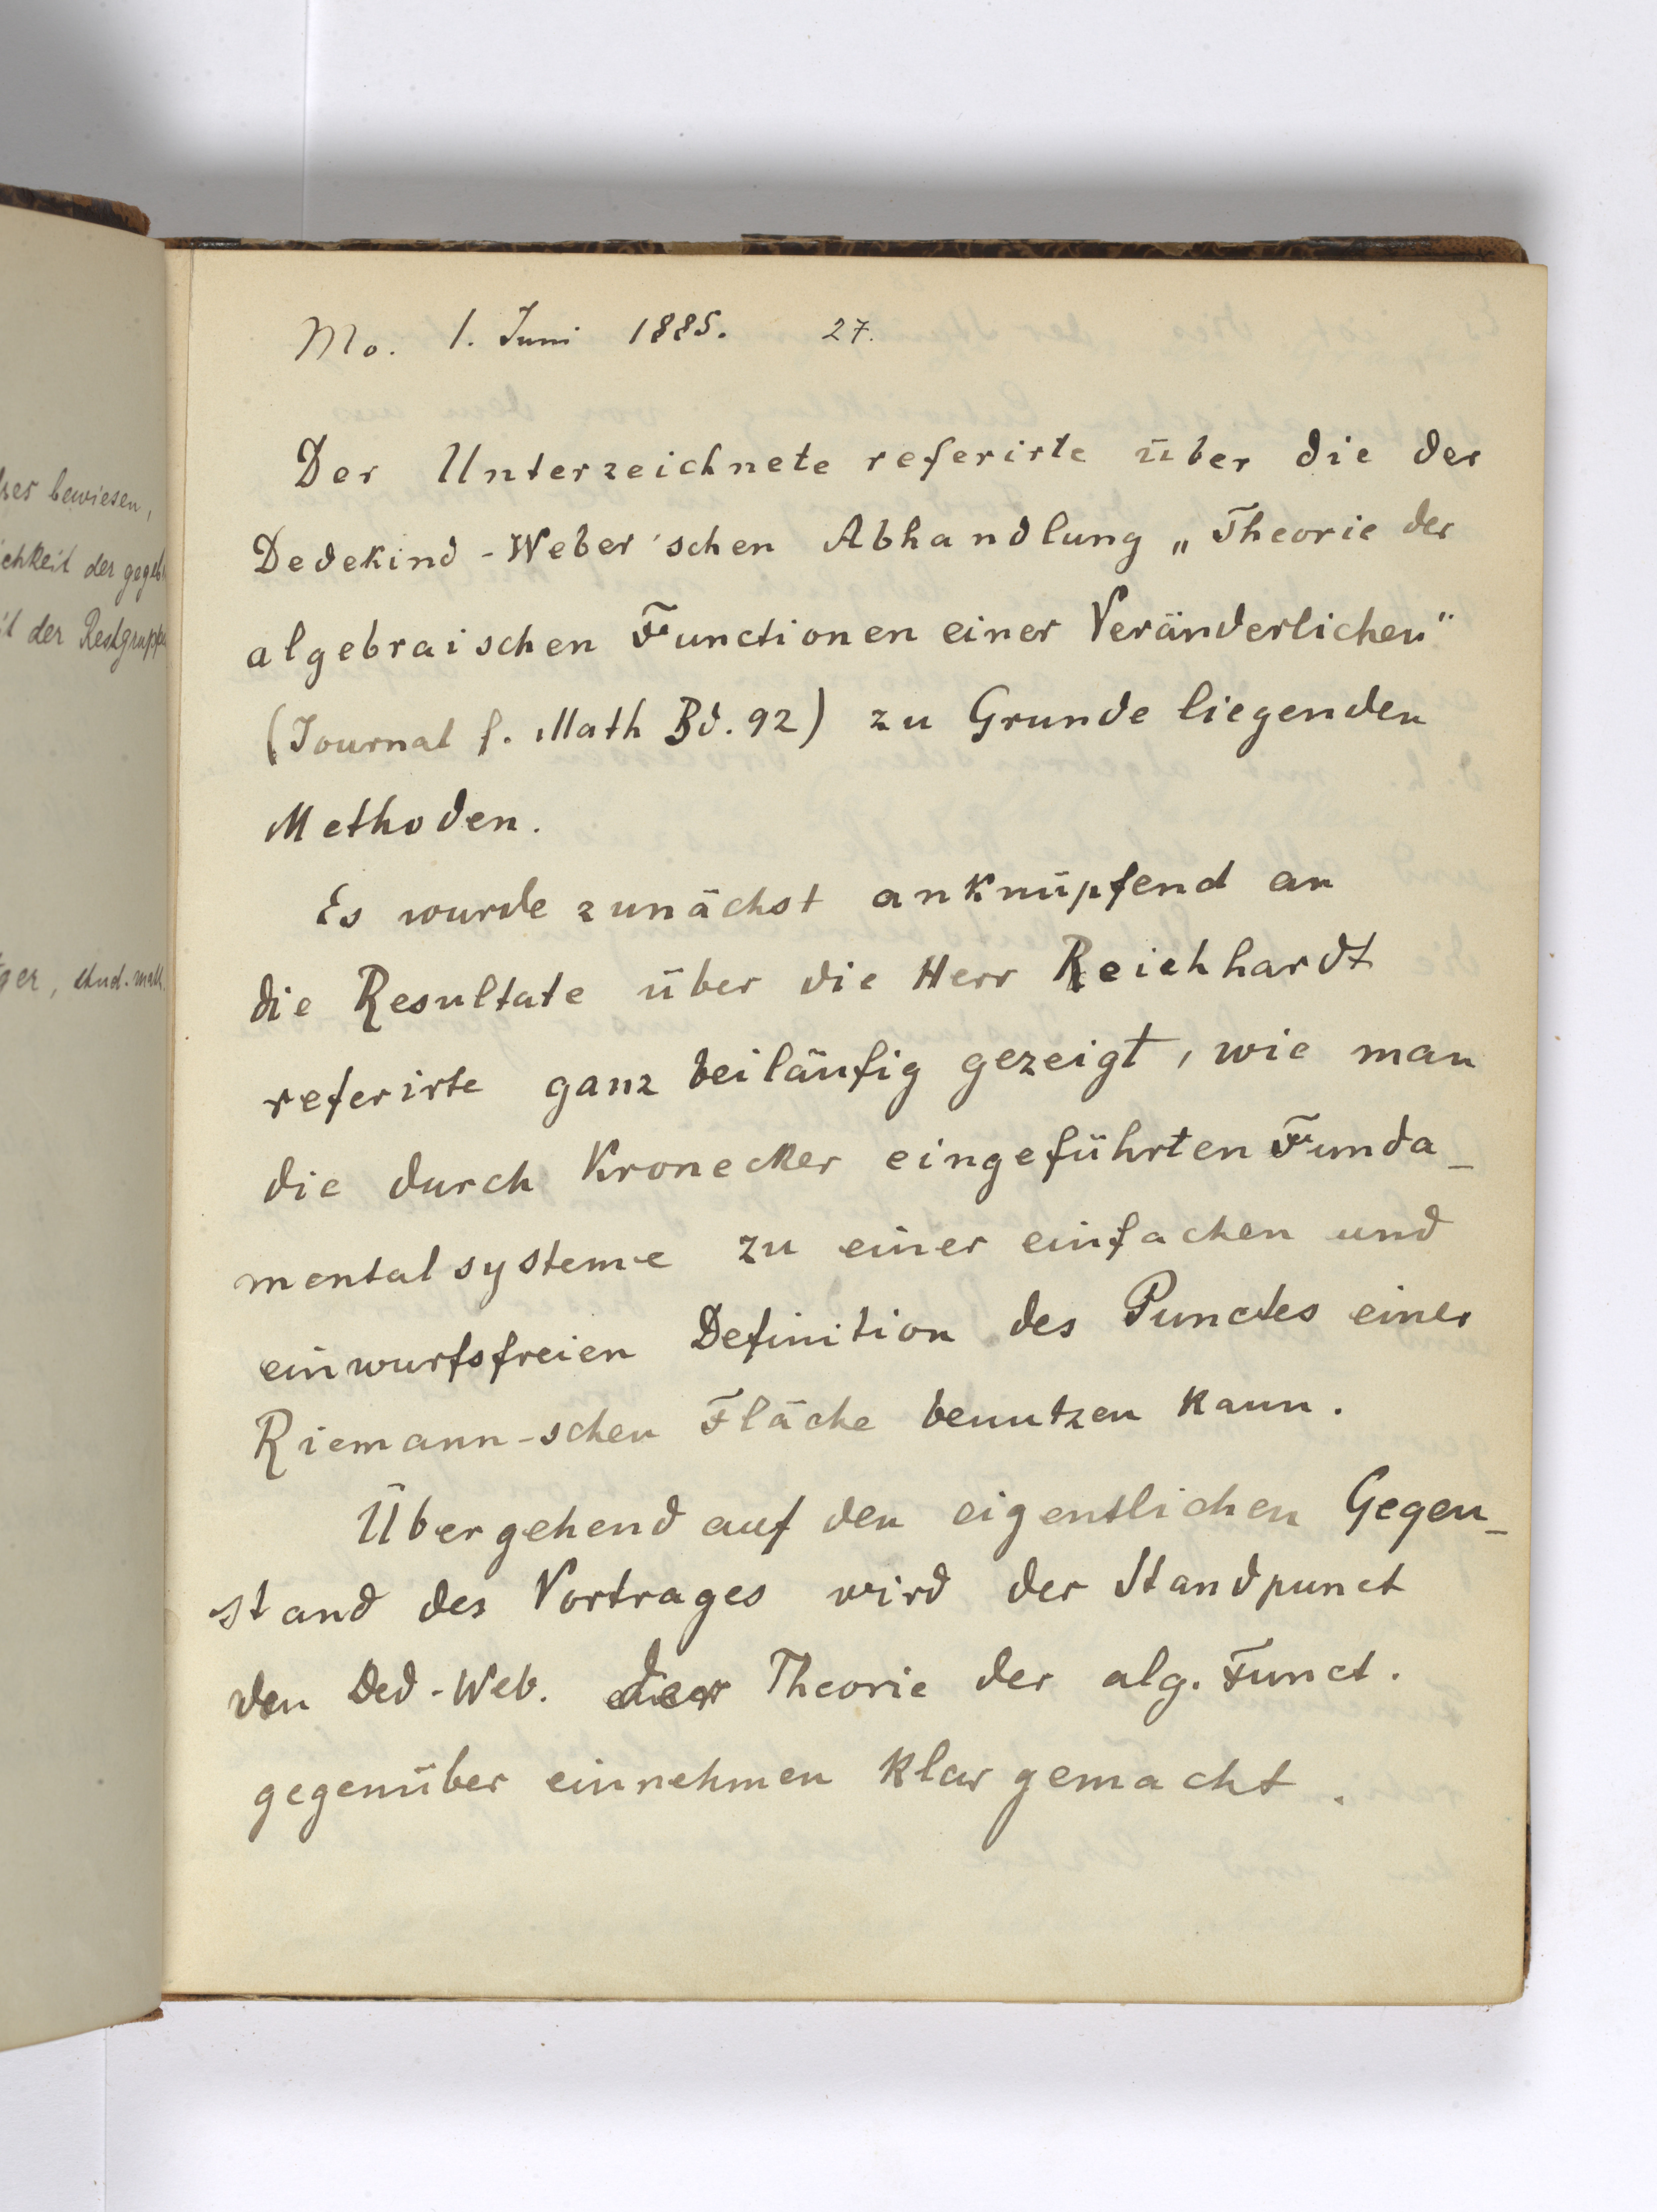 hses bewiesen,
ichkeit der gegeb
it der Restgruppe
ger, stud. math.
Mo. 1. Juni 1885. 27.
Der Unterzeichnete referirte über die der
Dedekind-Weber'schen Abhandlung „Theorie der
algebraischen Functionen einer Veränderlichen"
(Journal f. Math Bd. 92) zu Grunde liegenden
Methoden.
Es wurde zunächst anknüpfend an
die Resultate über die Herr Reichhardt
referirte ganz beiläufig gezeigt, wie man
die durch Kronecker eingeführten Funda-
mentalsysteme zu einer einfachen und
einwurfsfreien Definition des Punctes einer
Riemann-schen Fläche benutzen kann.
Übergehend auf den eigentlichen Gegen-
stand des Vortrages wird der Standpunct
den Ded-Web. der Theorie der alg. Funct.
gegenüber einnehmen klar gemacht.